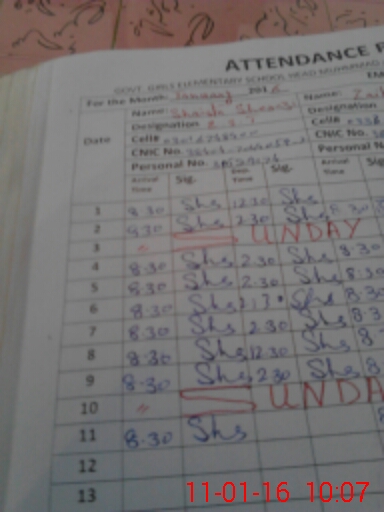 ATTENDANCE
GOVT. GIRLS ELEMENTARY SCHOOL HEAD MUHAMMAD
For the Month January 201
Name: Name:
Designation Designation
Date Cell# Cell#
CNIC No. CNIC No.
Personal No. Personal N
Arrival Time Sig. Dep. Time Sig. Arrival Time Sig
1 8.30 Shs 12.30 Shs
2 8.30 Shs 2.30 Shs 8.30
3 " SUNDAY
4 8.30 Shs 2.30 Shs 8.30
5 8.30 Shs 2.30 Shs 8.30
6 8.30 Shs 2.30 Shs 8.30
7 8.30 Shs 2.30 Shs 8.3
8 8.30 Shs 12.30 Shs 8
9 8.30 Shs 2.30 Shs 8
10 " SUNDA
11 8.30 Shs
12
13
11-01-16 10:07